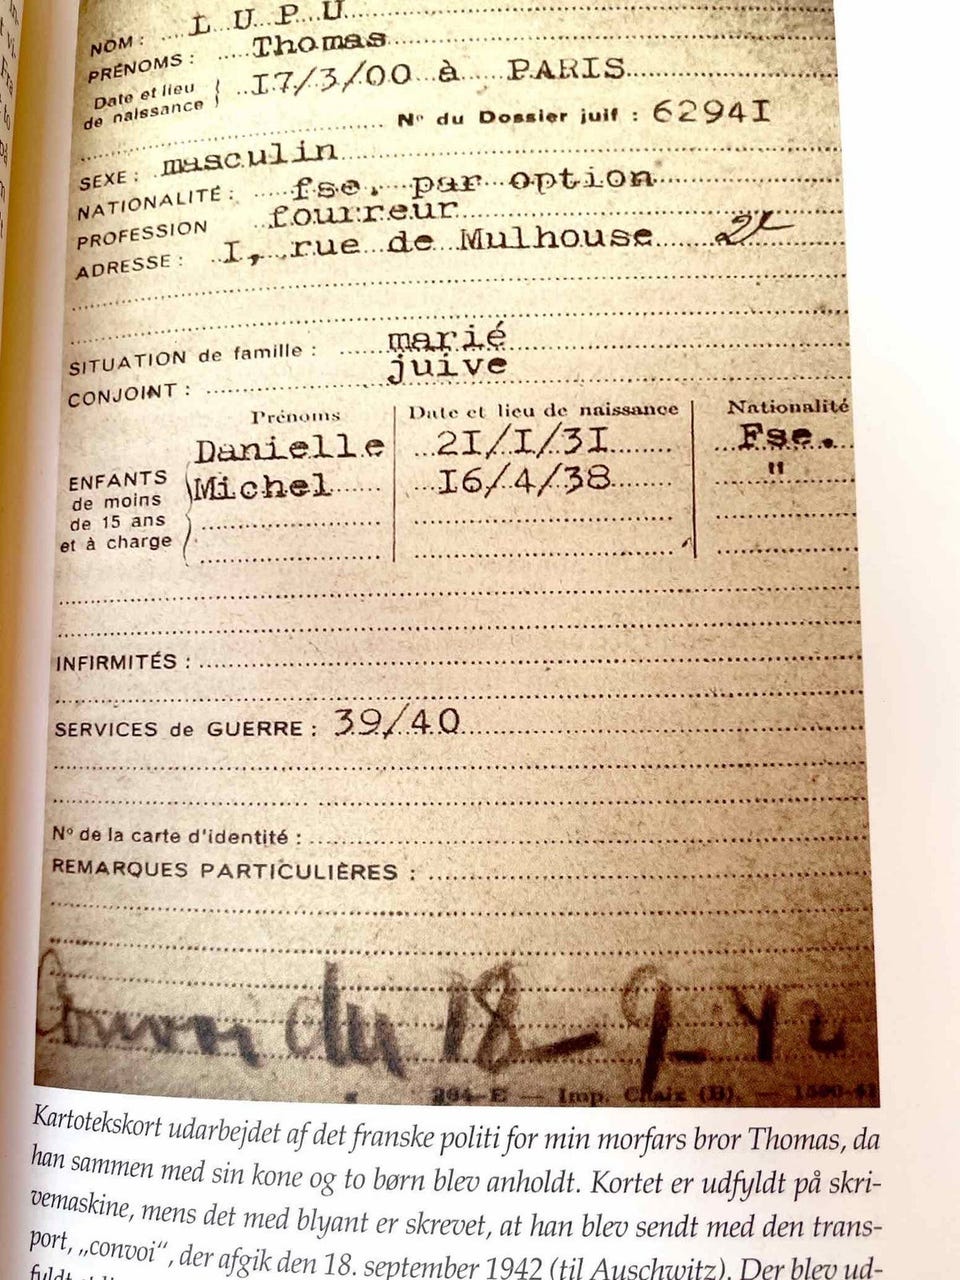 NOM : LUPU
PRÉNOMS : Thomas
Date et lieu de naissance } 17/3/00 à PARIS
Nº du Dossier juif : 62941
SEXE : masculin
NATIONALITÉ : fse. par option
PROFESSION fourreur
ADRESSE : I, rue de Mulhouse
SITUATION de famille : marié
CONJOINT : juive
Prénoms Date et lieu de naissance Nationalité
ENFANTS de moins de 15 ans et à charge
Danielle 21/1/31 Fse.
Michel 16/4/38 "
INFIRMITÉS :
SERVICES de GUERRE : 39/40
Nº de la carte d'identité :
REMARQUES PARTICULIÈRES :
Convoi du 18-9-42
264-E — Imp. Chaix (B). —
Kartotekskort udarbejdet af det franske politi for min morfars bror Thomas, da
han sammen med sin kone og to børn blev anholdt. Kortet er udfyldt på skri-
vemaskine, mens det med blyant er skrevet, at han blev sendt med den trans-
port, „convoi“, der afgik den 18. september 1942 (til Auschwitz). Der blev ud-